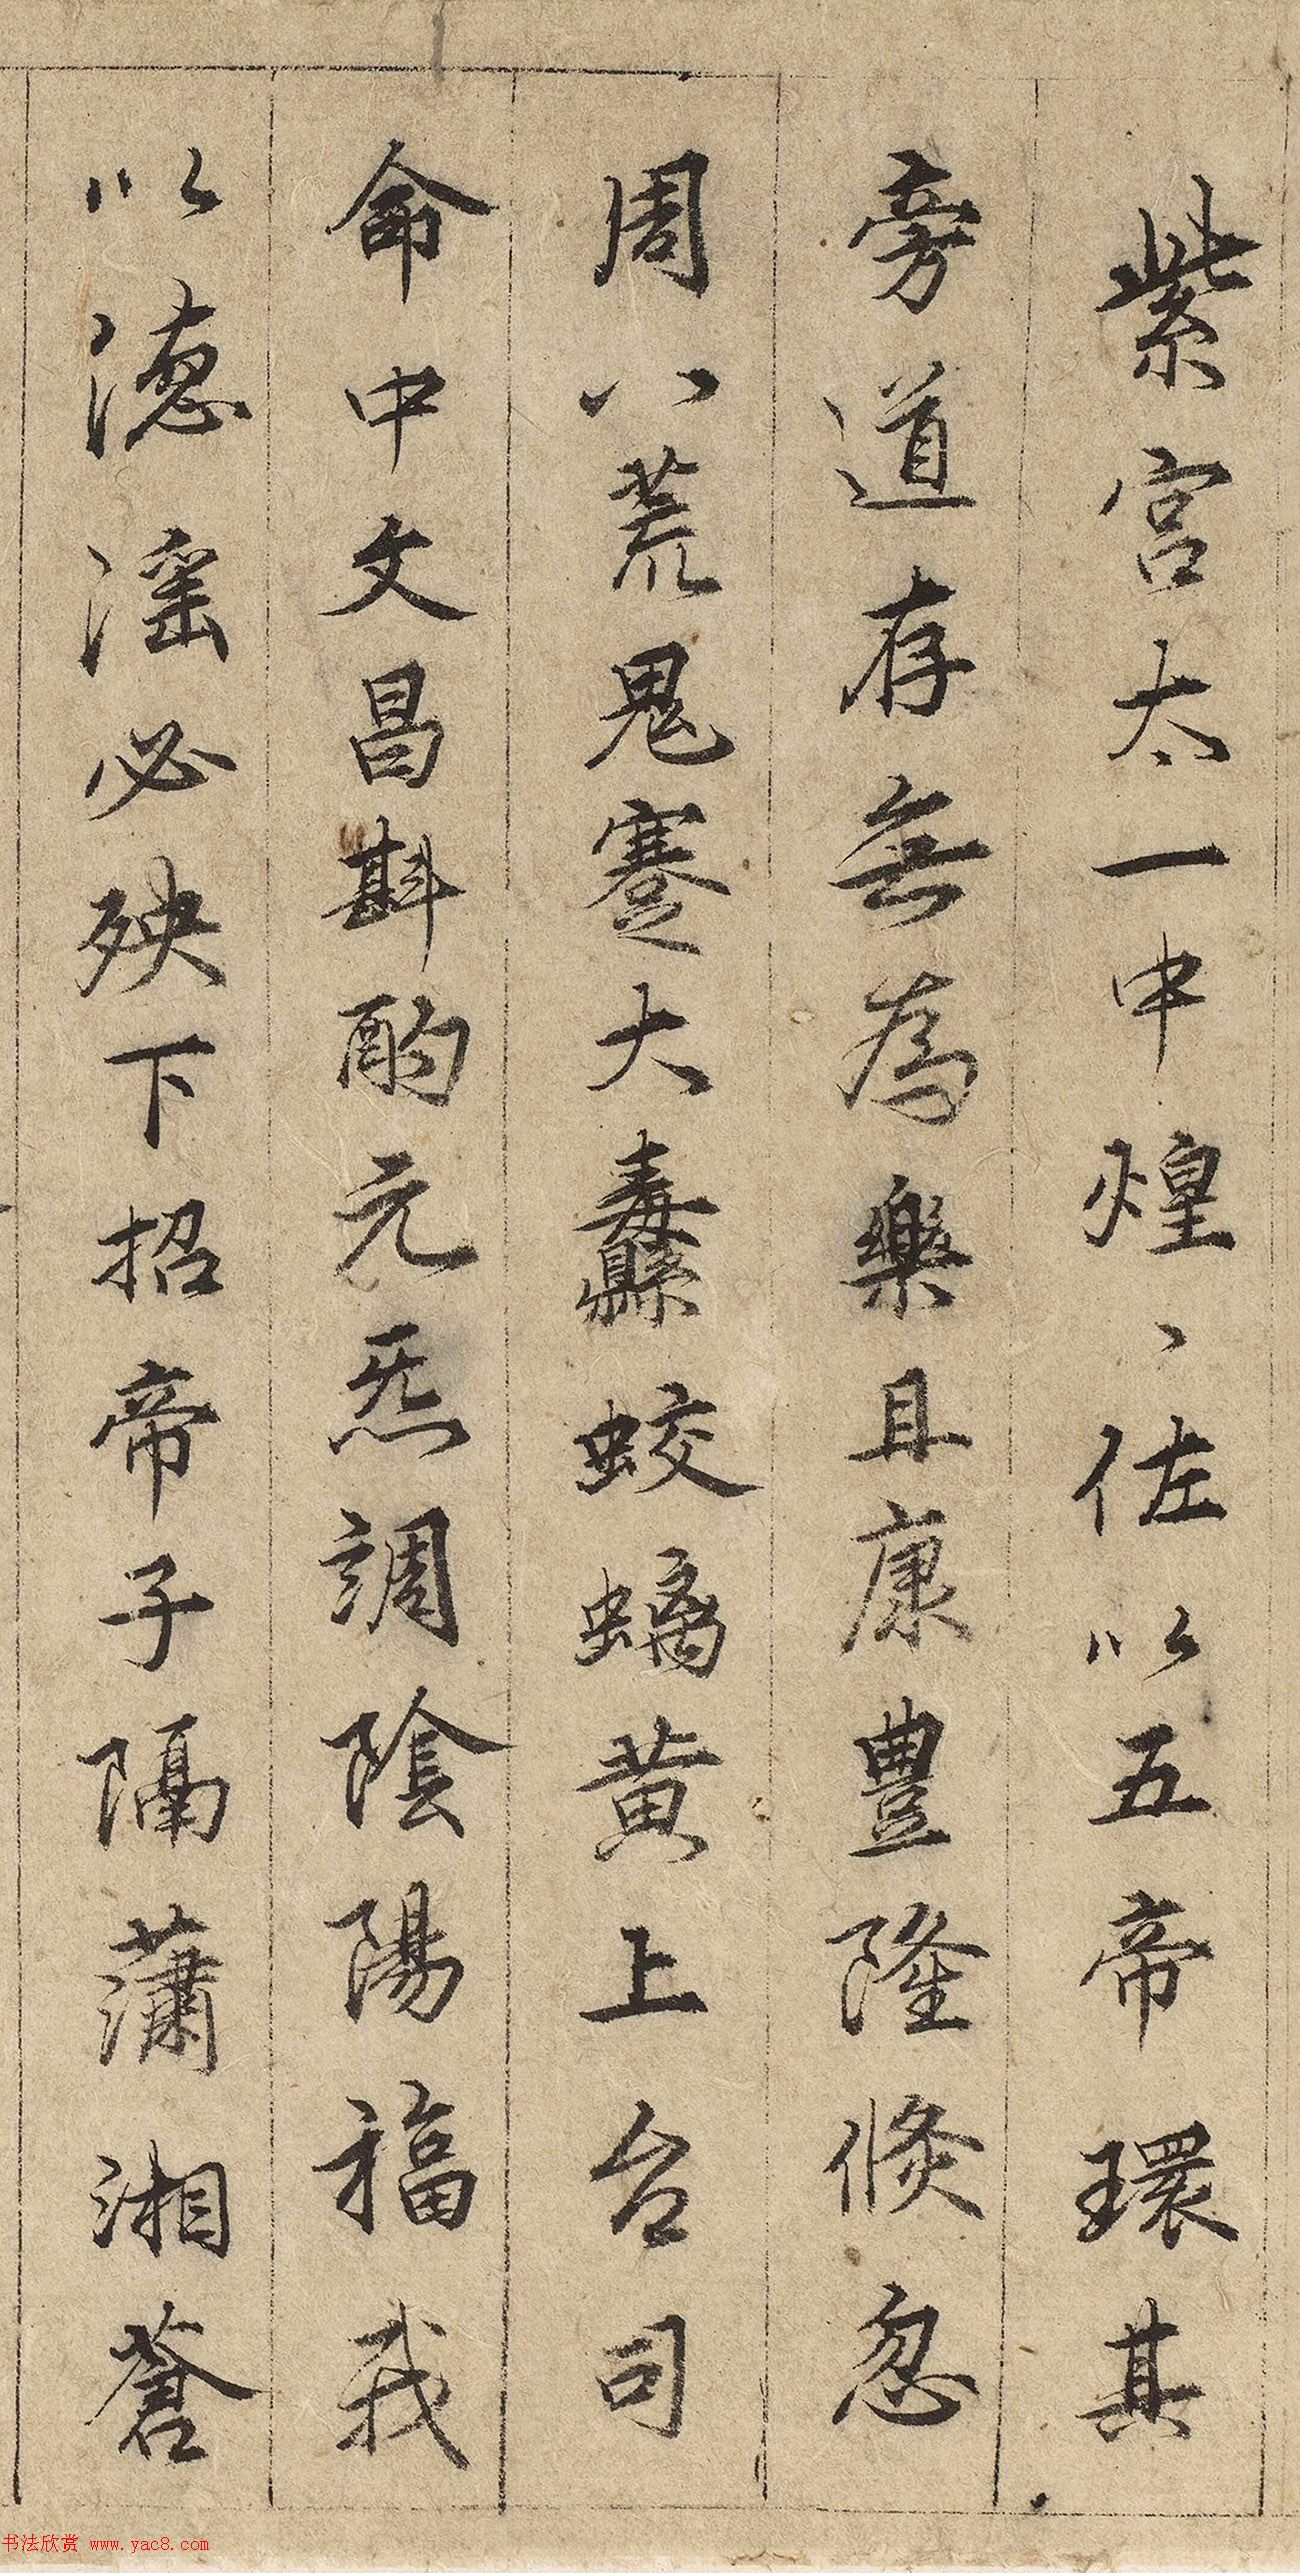 紫宮太一中煌、佐以五帝環其
旁道存無為樂且康豊隆倏忽
周八荒鬼蹇大纛蛟螭黄上台司
命中文昌斟酌元炁調陰陽福我
以德淫必殃下招帝子隔瀟湘蒼
书法欣赏 www.yac8.com